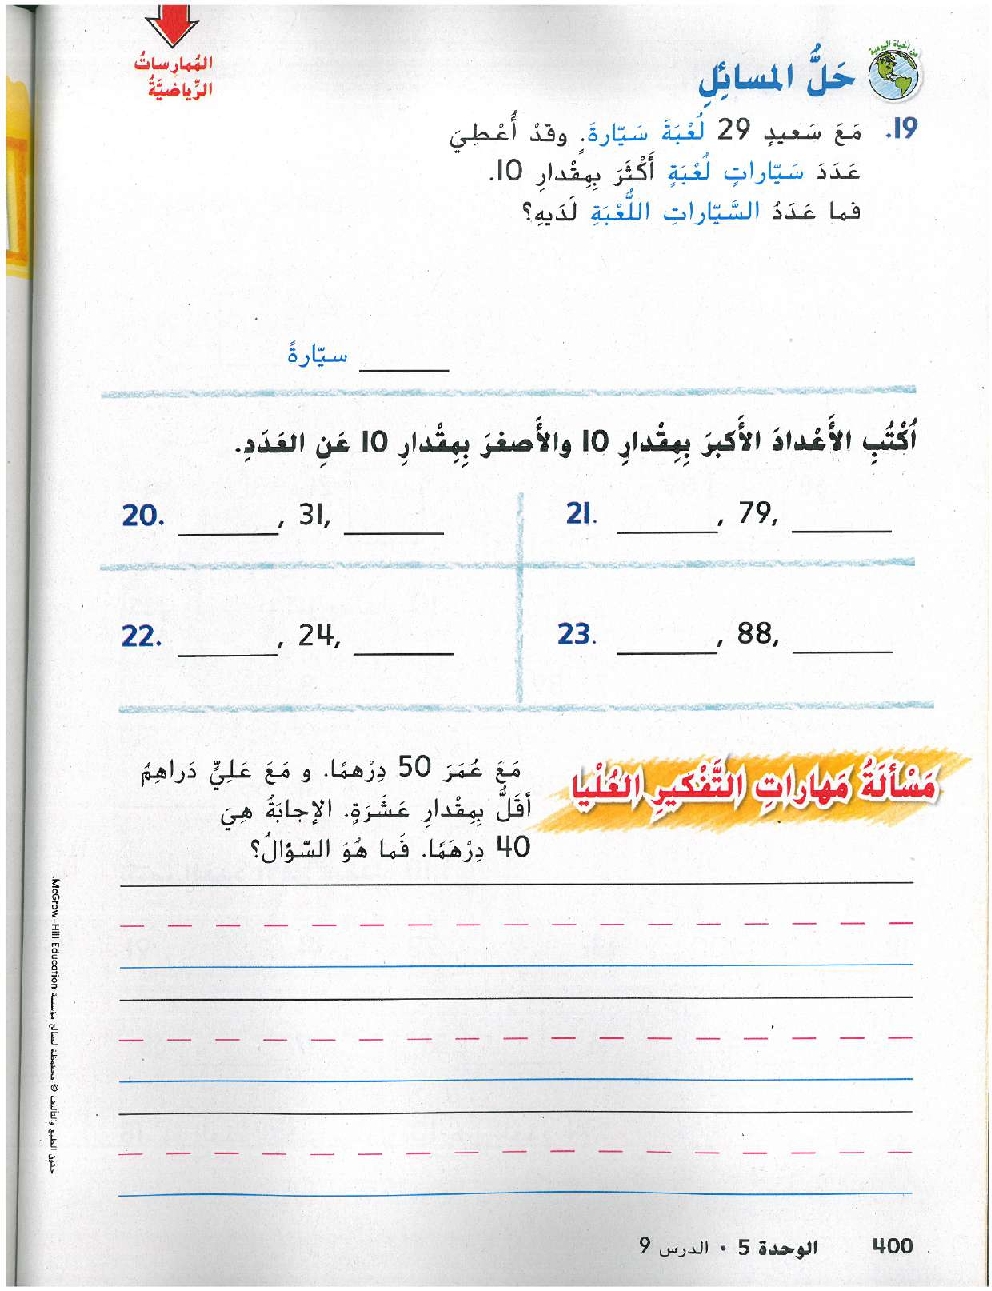 المُمارساتُ
الرِّياضيَّةُ
حَلُّ المسائِلِ
19. مَعَ سَعيدٍ 29 لُعْبَةَ سَيّارةَ. وقَدْ أُعْطِيَ
عَدَدَ سَيّاراتٍ لُعْبَةٍ أَكْثَرَ بِمِقْدارِ 10.
فما عَدَدُ السَّيّاراتِ اللُّعْبَةِ لَدَيهِ؟
_____ سيّارةً
اُكْتُبِ الأَعْدادَ الأَكبرَ بِمِقْدارِ 10 والأَصغرَ بِمِقْدارِ 10 عَنِ العَدَدِ.
20. _____, 31, _____
21. _____, 79, _____
22. _____, 24, _____
23. _____, 88, _____
مَسْأَلَةُ مَهاراتِ التَّفْكيرِ العُلْيا
مَعَ عُمَرَ 50 دِرْهمًا. و مَعَ عَلِيٍّ دَراهِمُ
أقَلُّ بِمِقْدارِ عَشَرَةٍ. الإجابَةُ هِيَ
40 دِرْهَمًا. فَما هُوَ السّؤالُ؟
حقوق الطبع والتأليف © محفوظة لصالح مؤسسة McGraw-Hill Education.
400 الوحدة 5 • الدرس 9